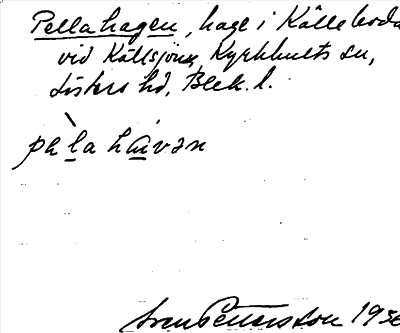 Pellahagen, hage i Kålleboda
vid Kållsjön, Kyrkhults sn,
Listers hd, Blek. l.
pela haivan
Sven Pettersson 1936